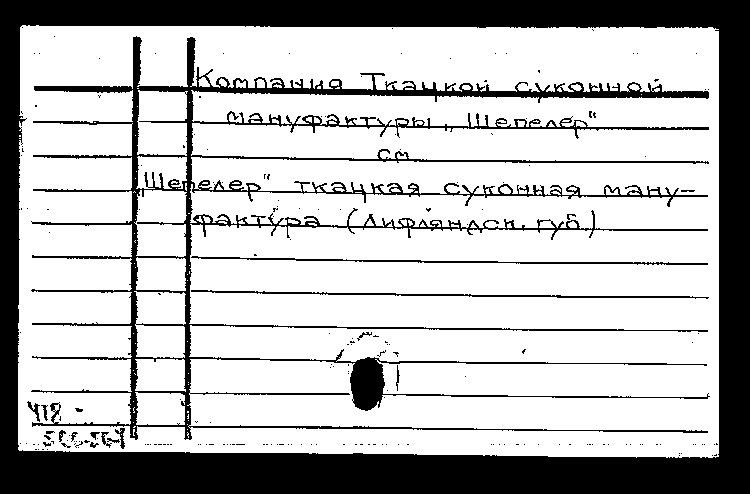 Компания Ткацкой суконной
мануфактуры „Шепелер"
см
„Шепелер" ткацкая суконная ману-
фактура (Лифляндск. губ.)
418 -